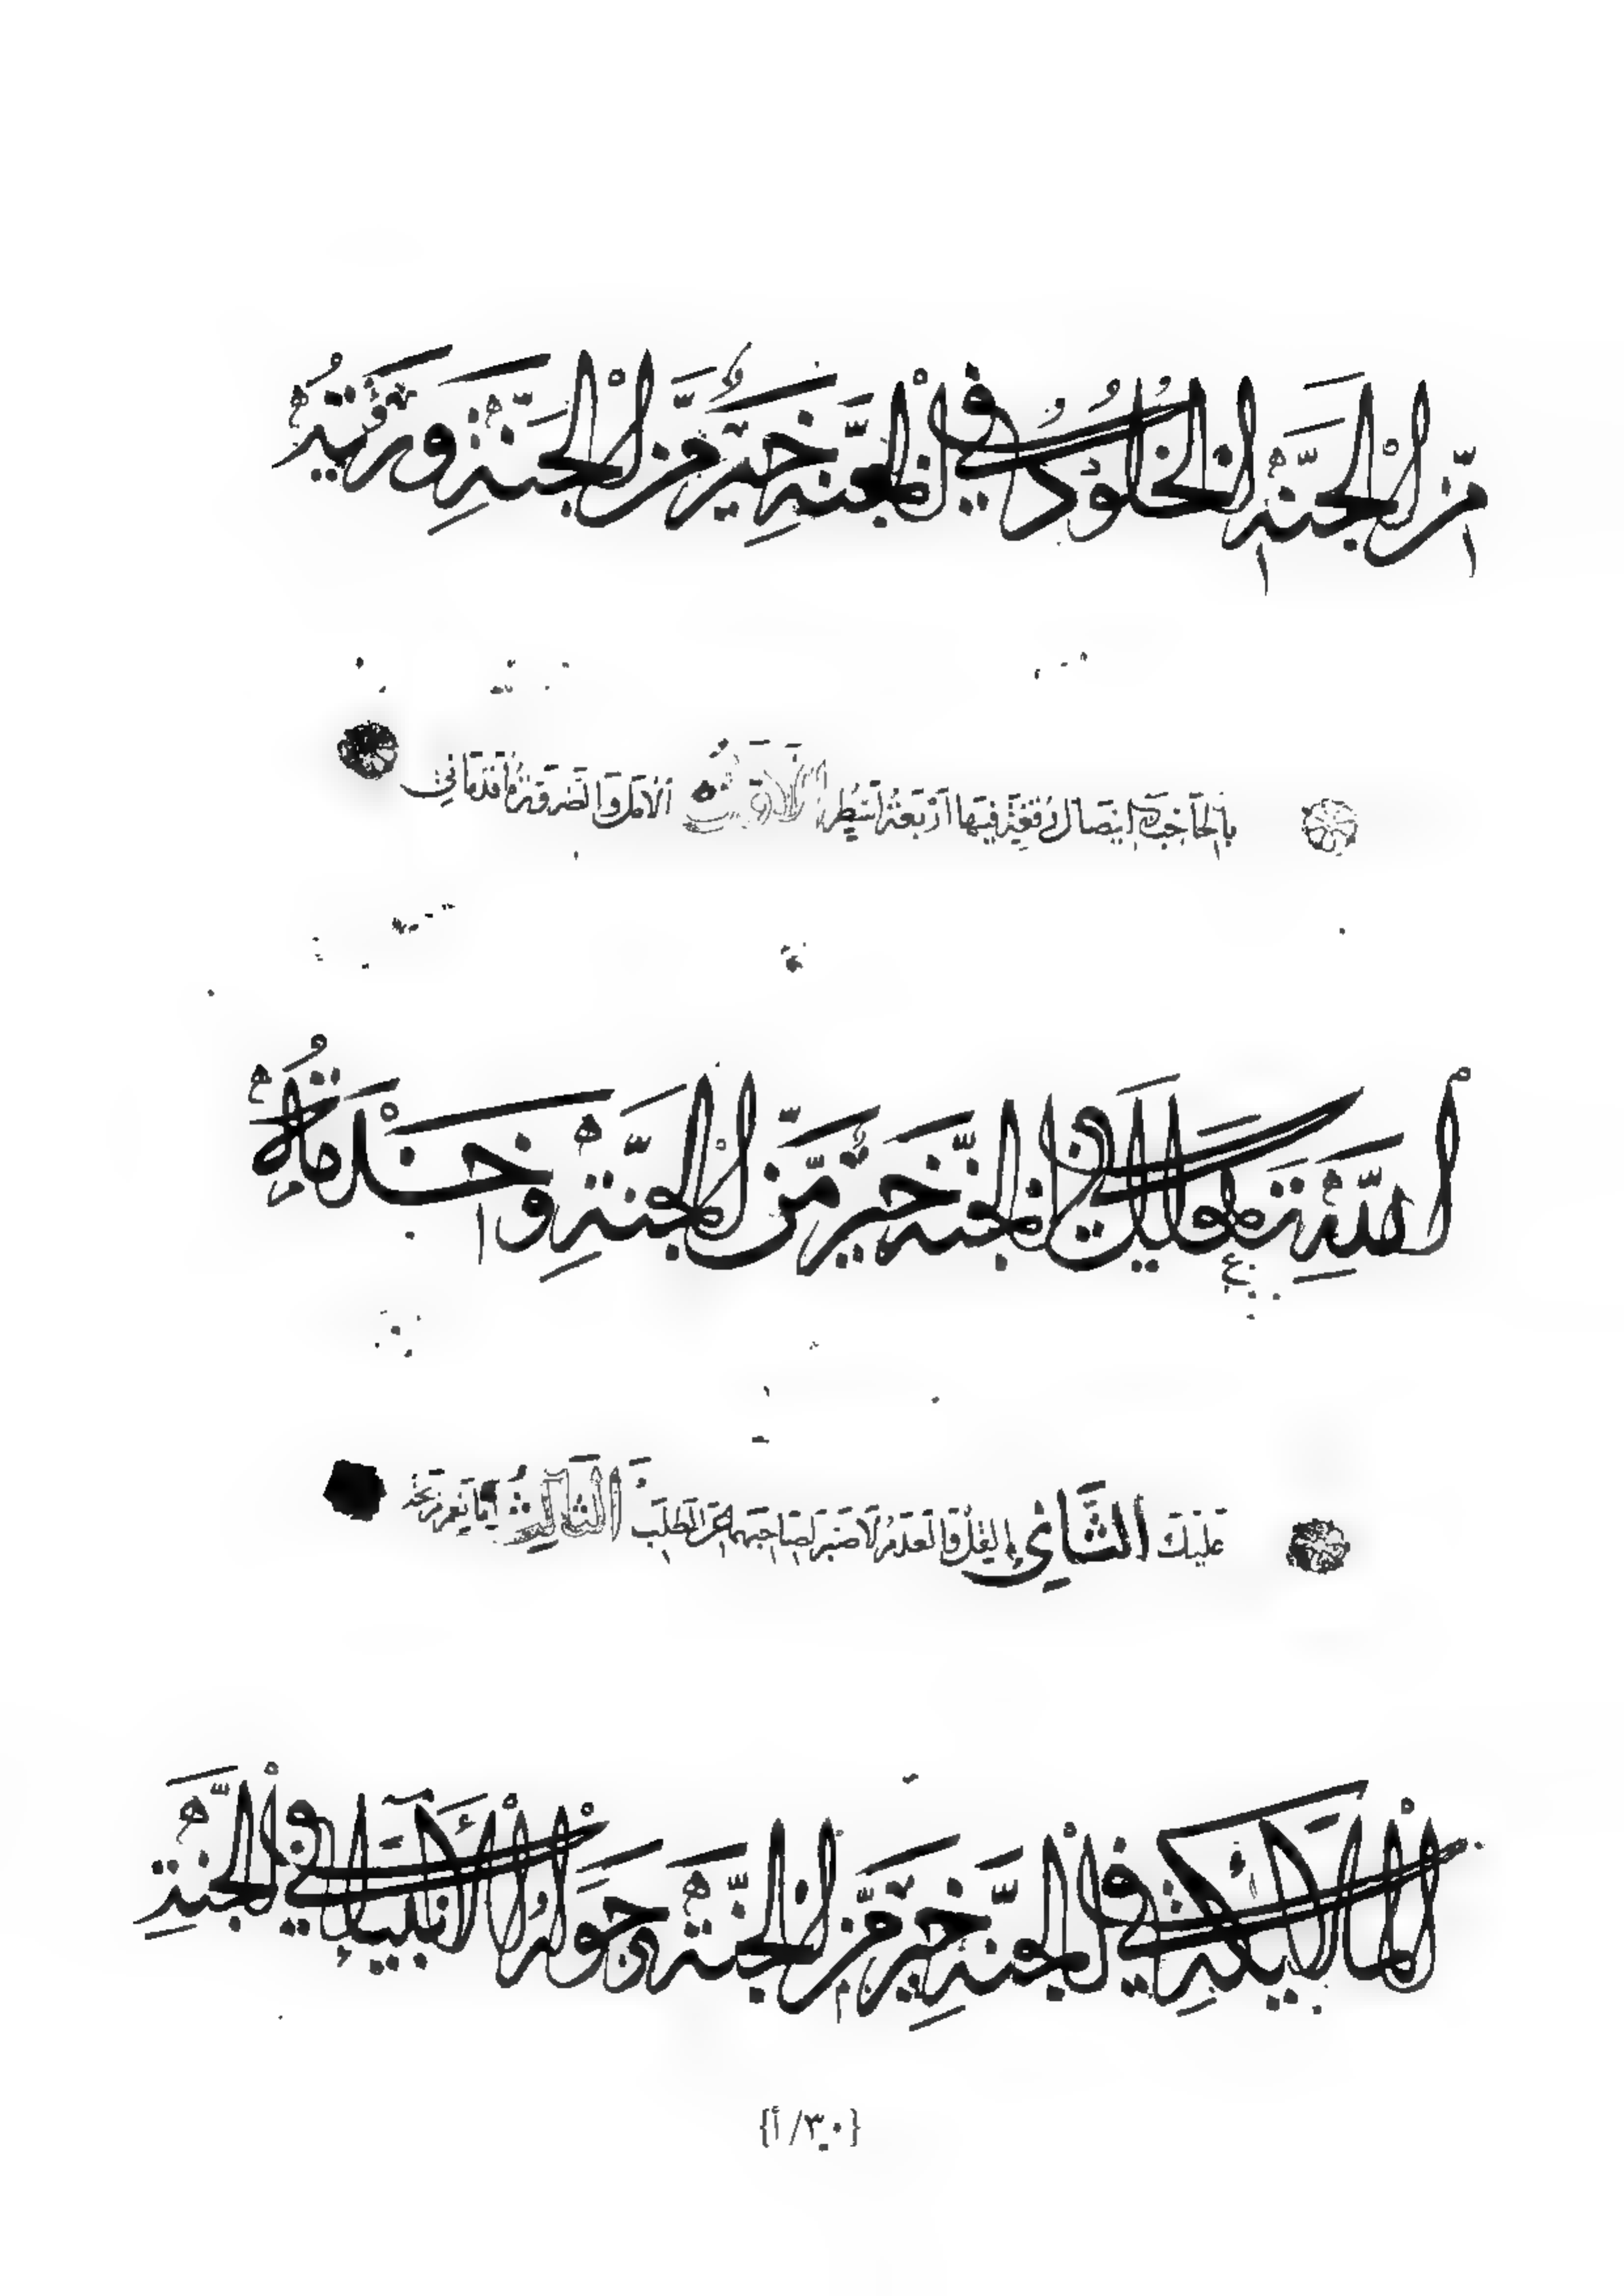 مِّنَ الْجَنَّةِ الْخُلُودُ فِي الْجَنَّةِ خَيْرٌ مِّنَ الْجَنَّةِ وَرُؤْيَةُ
بِالْحَاجِبِ إِيصَالَ رُقْعَةٍ فِيهَا أَرْبَعَةُ أَسْطُرٍ الْأَوَّلُ الْأَمَلُ وَالضَّرُورَةُ أَقْدَمَانِي
اللَّهِ تَعَالَى فِي الْجَنَّةِ خَيْرٌ مِّنَ الْجَنَّةِ وَخِدْمَةُ
عَلَيْكَ الثَّانِي الْعَدَمُ لَا صَبْرَ لِصَاحِبِهِمَا عَنِ الطَّلَبِ الثَّالِثُ
الْمَلَائِكَةِ فِي الْجَنَّةِ خَيْرٌ مِّنَ الْجَنَّةِ جِوَارُ الْأَنْبِيَاءِ فِي الْجَنَّةِ
{٣٠/أ}